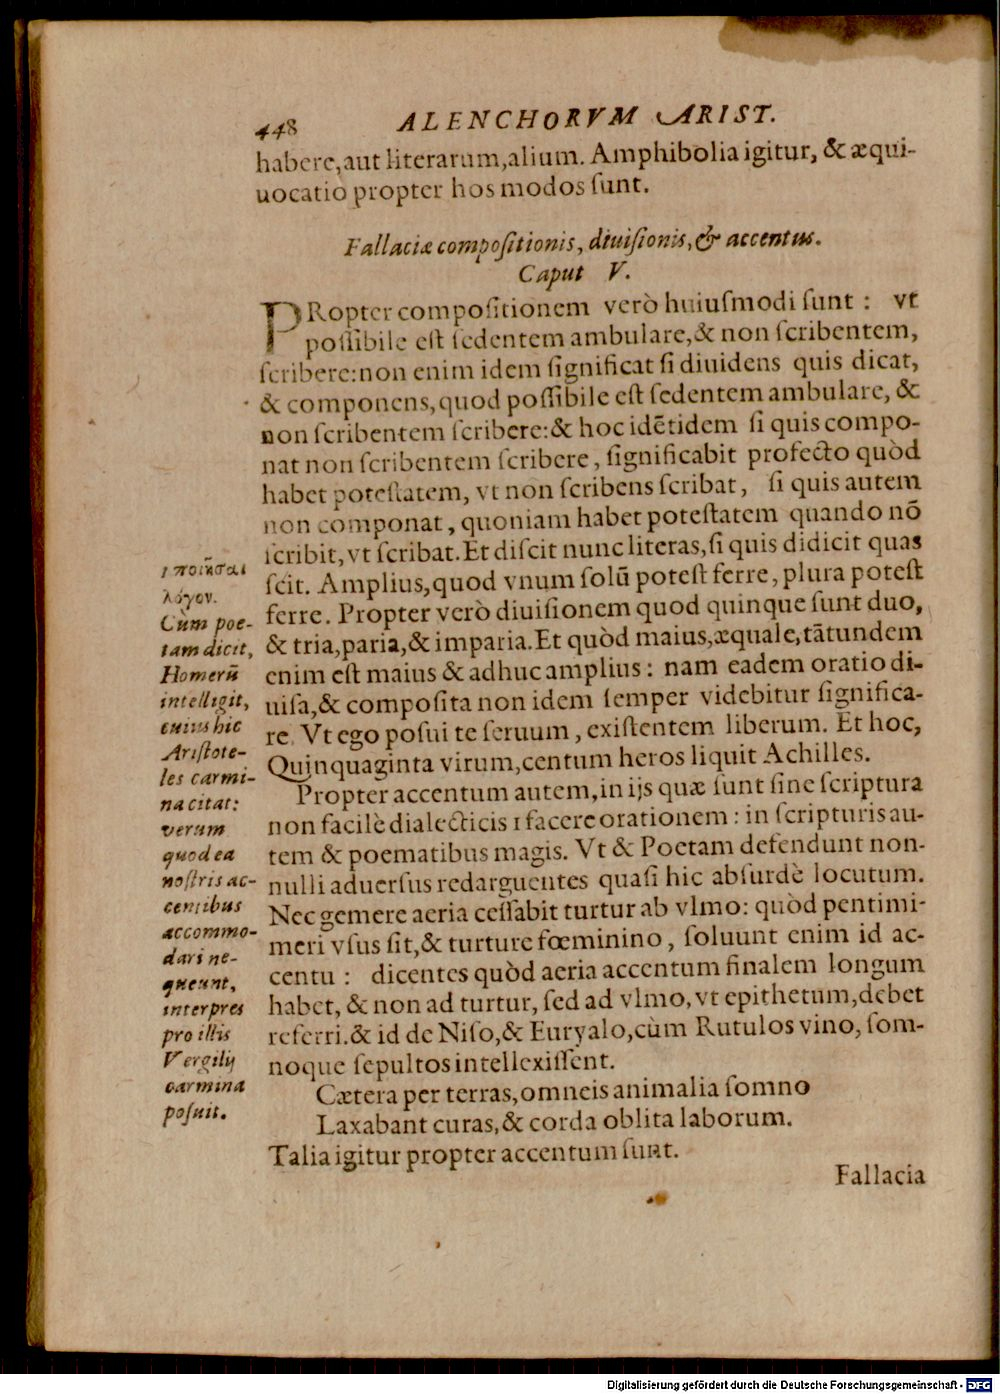 448 ALENCHORVM ARIST.
habere, aut literarum, alium. Amphibolia igitur, & æqui-
uocatio propter hos modos ſunt.
Fallaciæ compoſitionis, diuiſionis, & accentus.
Caput V.
PRopter compoſitionem verò huiuſmodi ſunt : vt
poſſibile eſt ſedentem ambulare, & non ſcribentem,
ſcribere: non enim idem ſignificat ſi diuidens quis dicat,
& componens, quod poſſibile eſt ſedentem ambulare, &
non ſcribentem ſcribere: & hoc idētidem ſi quis compo-
nat non ſcribentem ſcribere, ſignificabit profecto quòd
habet poteſtatem, vt non ſcribens ſcribat, ſi quis autem
non componat, quoniam habet poteſtatem quando nō
ſcribit, vt ſcribat. Et diſcit nunc literas, ſi quis didicit quas
ſcit. Amplius, quod vnum ſolū poteſt ferre, plura poteſt
ferre. Propter verò diuiſionem quod quinque ſunt duo,
& tria, paria, & imparia. Et quòd maius, æquale, tātundem
enim eſt maius & adhuc amplius : nam eadem oratio di-
uiſa, & compoſita non idem ſemper videbitur ſignifica-
re. Vt ego poſui te ſeruum, exiſtentem liberum. Et hoc,
Quinquaginta virum, centum heros liquit Achilles.
Propter accentum autem, in ijs quæ ſunt ſine ſcriptura
non facilè dialecticis 1 facere orationem : in ſcripturis au-
tem & poematibus magis. Vt & Poetam defendunt non-
nulli aduerſus redarguentes quaſi hic abſurdè locutum.
Nec gemere aeria ceſſabit turtur ab vlmo: quòd pentimi-
meri vſus ſit, & turture fœminino, ſoluunt enim id ac-
centu : dicentes quòd aeria accentum finalem longum
habet, & non ad turtur, ſed ad vlmo, vt epithetum, debet
referri. & id de Niſo, & Euryalo, cùm Rutulos vino, ſom-
noque ſepultos intellexiſſent.
Cætera per terras, omneis animalia ſomno
Laxabant curas, & corda oblita laborum.
Talia igitur propter accentum ſunt.
Fallacia
1 ποιῆσαι
λόγον.
Cùm poe-
tam dicit,
Homerū
intelligit,
cuius hic
Ariſtote-
les carmi-
na citat:
verum
quod ea
noſtris ac-
centibus
accommo-
dari ne-
queunt,
interpres
pro illis
Vergilij
carmina
poſuit.
Digitalisierung gefördert durch die Deutsche Forschungsgemeinschaft - DFG